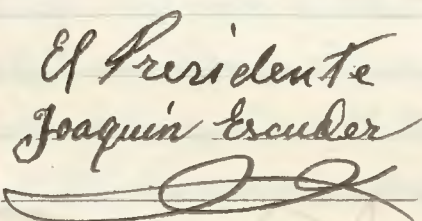 El Presidente
Joaquín Escuder